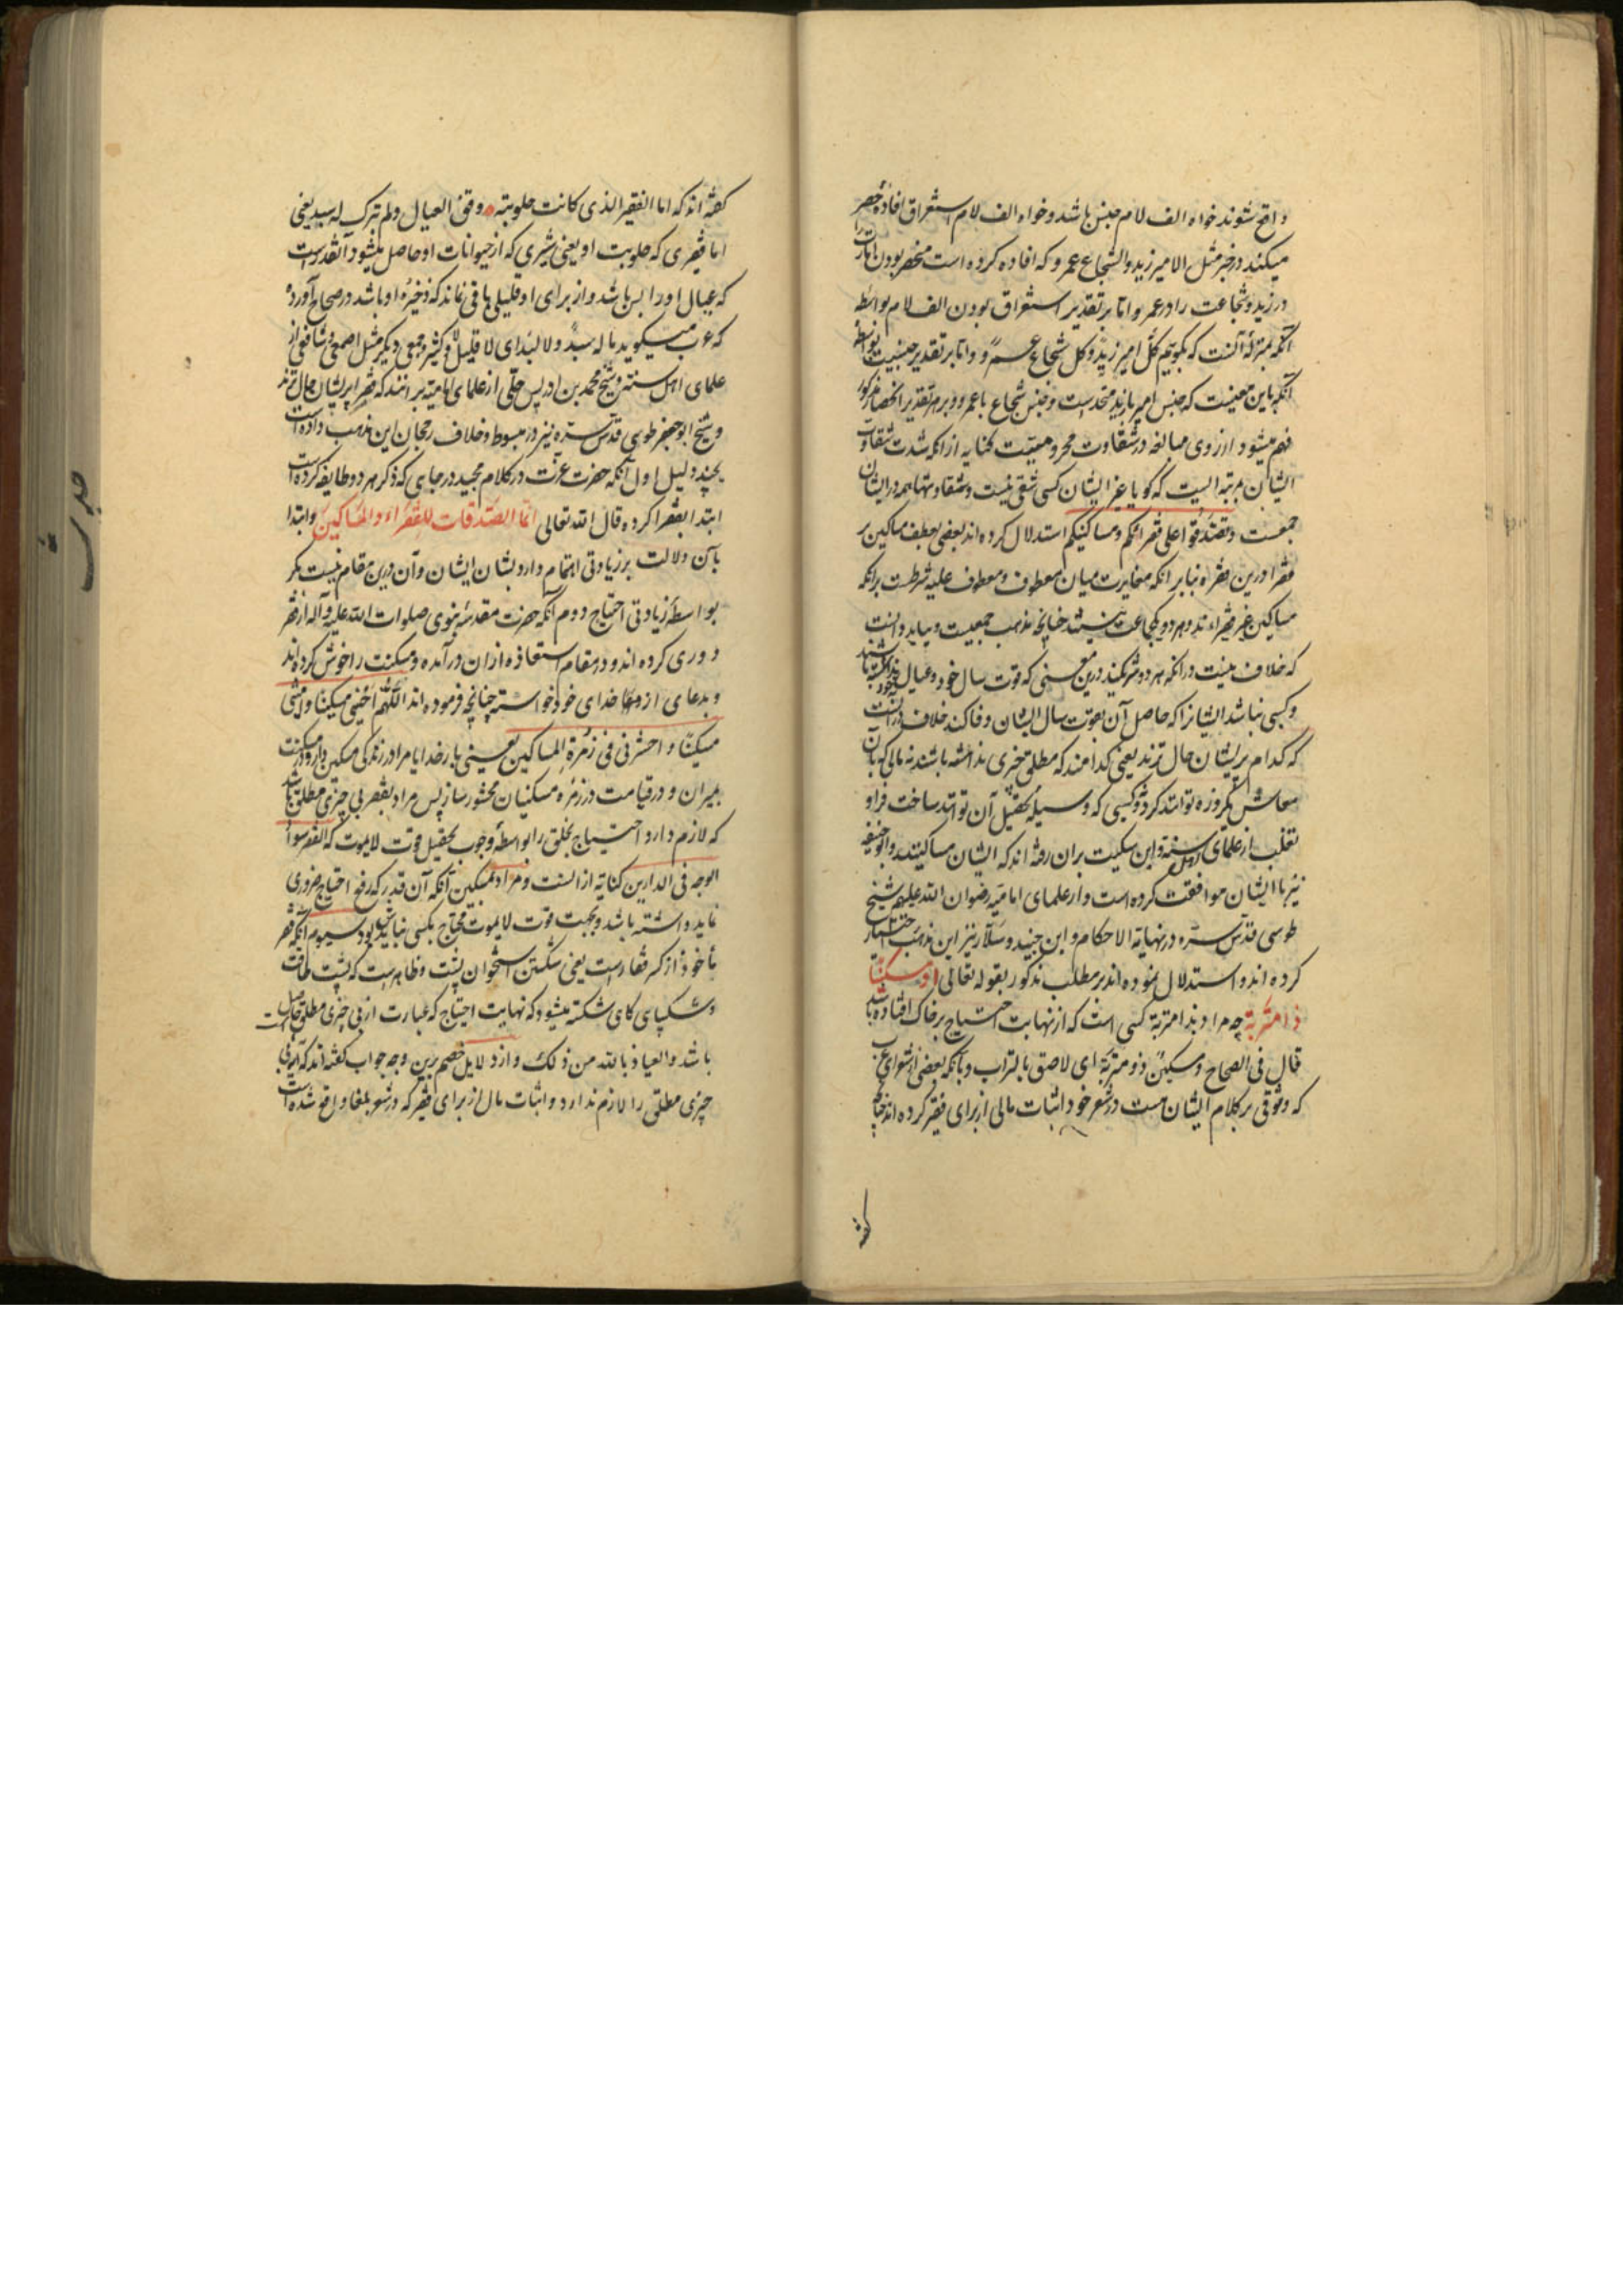 واقع شوند خواه الف لام جنس باشد و خواه الف لام استغراق افادهٔ حصر
میکند در خبر مثل الامیر زید والشجاع عمرو که افاده کرده است منحصر بودن امارت را
در زید و شجاعت را در عمرو اما بر تقدیر استغراق بودن الف لام بواسطه
آنکه بمنزلهٔ آنست که بگوییم کل امیر زید و کل شجاع عمرو و اما بر تقدیر جنسیت بواسطه
آنکه باین معنیست که جنس امیر با زید متحد است و جنس شجاع با عمرو و برهر تقدیر انحصار مذکور
فهم میشود از روی مبالغه در شقاوت محرومیت کنایه از آنکه شدت شقاوت
ایشان بمرتبه ایست که گویا غیر ایشان کسی شقی نیست و شقاوتها همه در ایشان
جمعست و تصدقوا علی فقرائکم ومساکینکم استدلال کرده اند بعضی بعطف مساکین بر
فقرا درین فقره بنابر آنکه مغایرت میان معطوف و معطوف علیه شرطست برانکه
مساکین غیر فقراءاند و هر دو یکجماعت نیستند چنانچه مذهب جمعیست و بباید دانست
که خلاف نیست درانکه هر دو شریکند درین معنی که قوت سال خود و عیال خود نداشته باشند
و کسبی نباشد ایشانرا که حاصل آن بقوت سال ایشان وفا کند خلاف در آنست
که کدام پریشان حال ترند یعنی کدامند که مطلق چیزی نداشته باشند نه مالی که بآن
معاش یکروزه توانند کرد و نه کسبی که وسیلهٔ تحصیل آن توانند ساخت فراو
ثعلب از علمای اهل سنت و ابن سکیت بران رفته اند که ایشان مساکینند و ابوحنیفه
نیز با ایشان موافقت کرده است و از علمای امامیه رضوان الله علیهم شیخ
طوسی قدس سره در نهایة الاحکام و ابن جنید و سلار نیز این مذهب اختیار
کرده اند و استدلال نموده اند بر مطلب مذکور بقوله تعالی او مسکینا
ذا متربة چه مراد بذا متربة کسی است که از نهایت احتیاج بر خاک افتاده باشد
قال فی الصحاح ومسکین ذو متربة ای لاصق بالتراب و بآنکه بعضی از شعرای عرب
که وثوقی بر کلام ایشان هست در شعر خود اثبات مالی از برای فقیر کرده اند چنانچه
گفته
گفته اند که اما الفقیر الذی کانت حلوبته وفق العیال ولم یترک له سبد یعنی
اما فقیری که حلوبت او یعنی شیری که از حیوانات او حاصل میشود آنقدر است
که عیال او را بس باشد و از برای او قلیلی باقی نماند که ذخیرهٔ او باشد در صحاح آورده
که عرب میگوید ما له سبد ولا لبد ای لا قلیل ولا کثیر و جمعی دیگر مثل اصمعی و شافعی از
علمای اهل سنت و شیخ محمد بن ادریس حلی از علمای امامیه برانند که فقرا پریشان حال ترند
و شیخ ابوجعفر طوسی قدس سره نیز در مبسوط و خلاف رجحان این مذهب داده است
بچند دلیل اول آنکه حضرت عزت در کلام مجید در جایی که ذکر هر دو طایفه کرده است
ابتدا بفقرا کرده قال الله تعالی انما الصدقات للفقراء والمساکین و ابتدا
بآن دلالت بر زیادتی اهتمام دارد بشان ایشان و آن درین مقام نیست مگر
بواسطهٔ زیادتی احتیاج دوم آنکه حضرت مقدسهٔ نبوی صلوات الله علیه وآله از فقر
دوری کرده اند و در مقام استعاذه ازان درآمده و مسکنت را خوش کرده اند
و بدعای از خدای خود خواسته چنانچه فرموده اند اللهم احینی مسکینا وامتنی
مسکینا واحشرنی فی زمرة المساکین یعنی بار خدایا مرا در زندگی مسکین دار و در مسکنت
بمیران و در قیامت در زمره مسکینان محشور ساز پس مراد بفقر بی چیزی مطلق باشد
که لازم دارد احتیاج بخلق را بواسطهٔ وجوب تحصیل قوت لایموت که الفقر سواد
الوجه فی الدارین کنایه از انست و مراد بمسکین آنکه آن قدر که رفع احتیاج ضروری
نماید داشته باشد و بجهت قوت لایموت محتاج بکسی نباید بود سیوم آنکه فقر
مأخوذ از کسر فقار است یعنی شکستن استخوان پشت و ظاهر است که پشت طاقت
و شکیبای گاهی شکسته میشود که نهایت احتیاج که عبارت از بی چیزی مطلق است حاصل
باشد والعیاذ بالله من ذلک و از دلایل خصم برین وجه جواب گفته اند که
چیزی مطلق را لازم ندارد و اثبات مال از برای فقیر که در شعر بلغا واقع شده است